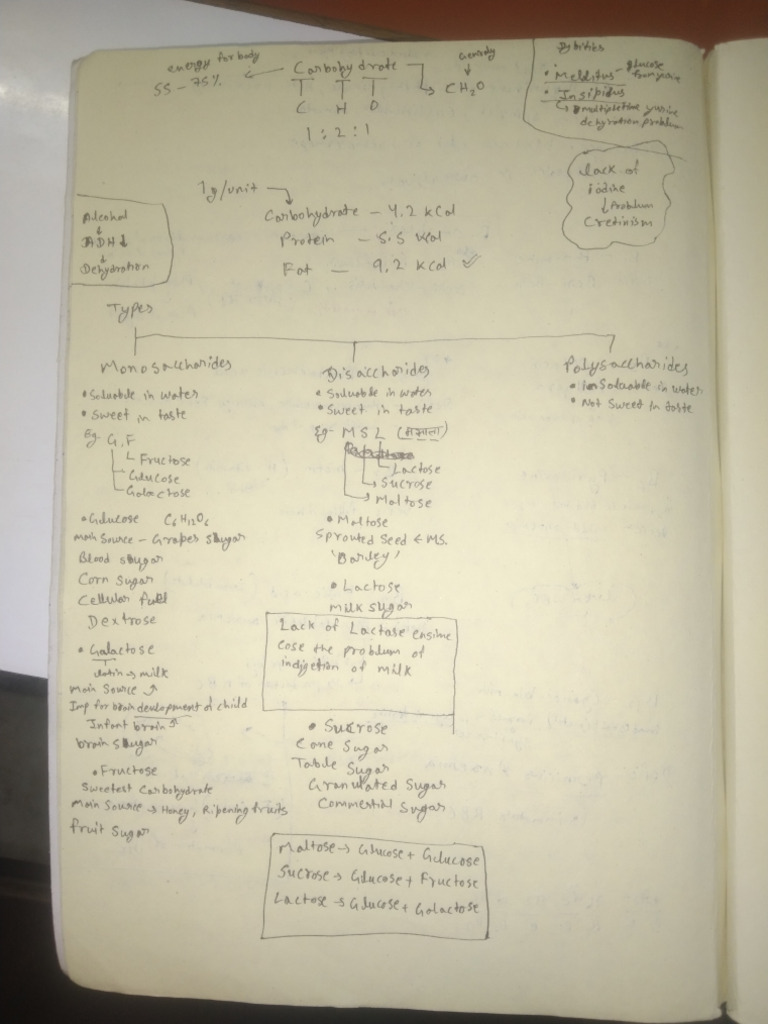 energy for body
55 - 75%
Carbohydrate
C H O
1 : 2 : 1
Generaly
CH₂O
Dybities
• Mellitus - glucose
from yurine
• Insipidus
yurine
dehyration problem
Lack of
iodine
↓ Problum
Cretinism
Alcohol
↓
ADH↓
↓
Dehydration
1g/unit
Carbohydrate - 4.2 kcal
Protein - 5.5 kcal
Fat - 9.2 kcal ✓
Types
Monosaccharides
• Soluable in water
• Sweet in taste
Eg- G, F
Fructose
Glucose
Galactose
• Glucose C₆H₁₂O₆
main Source - Grapes sugar
Blood sugar
Corn Sugar
Cellular fuel
Dextrose
• Galactose
latin → milk
Main Source
Imp for brain development of child
Infant brain
brain sugar
• Fructose
Sweetest Carbohydrate
Main Source → Honey, Ripening fruits
fruit Sugar
Disaccharides
• Soluable in water
• Sweet in taste
Eg- M S L (मसाला)
Lactose
Sucrose
Maltose
• Maltose
Sprouted Seed ← MS.
'Barley'
• Lactose
Milk Sugar
Lack of Lactase ensime
cose the problem of
indijetion of milk
• Sucrose
Cane Sugar
Table Sugar
Granulated Sugar
Commertial Sugar
Maltose → Glucose + Glucose
Sucrose → Glucose + Fructose
Lactose → Glucose + Galactose
Polysaccharides
• inSoluable in water
• Not Sweet in taste